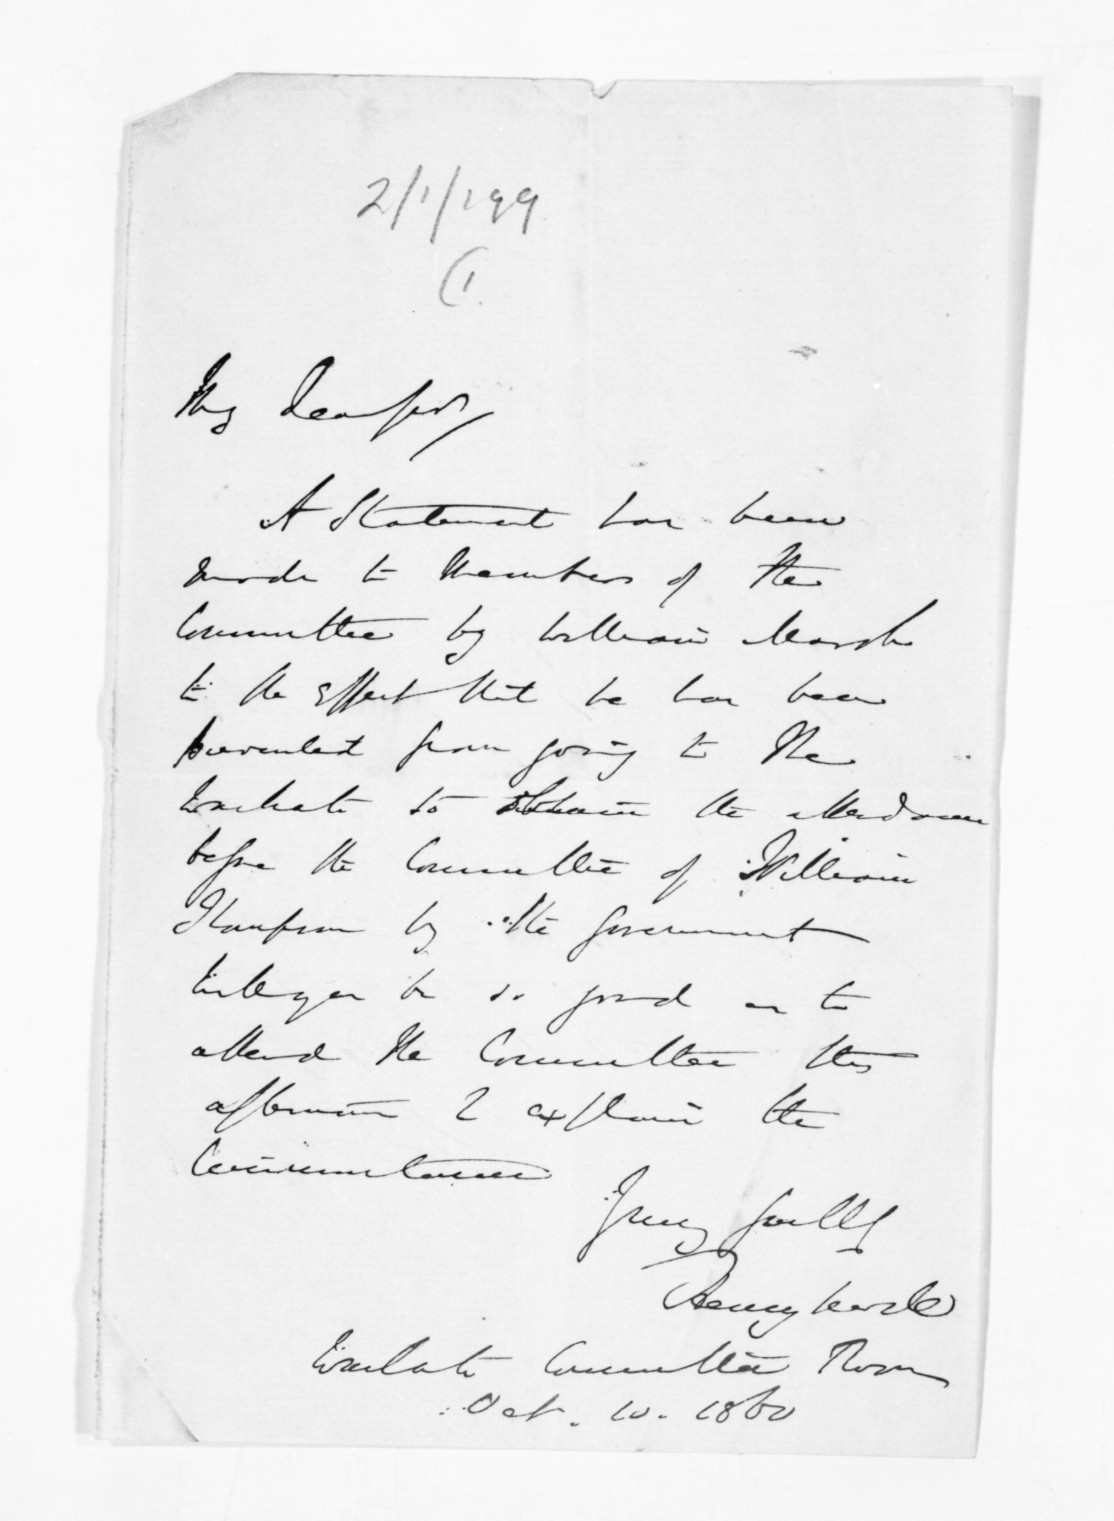 2/1/199
(1.
My Dear Sir,
A Statement has been
made to Members of the
Committee by William Marsh
to the effect that he has been
prevented from going to the
Waikato to obtain the attendance
before the Committee of William
Thompson by the Government
Will you be so good as to
attend the Committee this
afternoon & explain the
Circumstances
Yours faithfy
Henry Sewell
Waikato Committee Room
Oct. 10. 1860